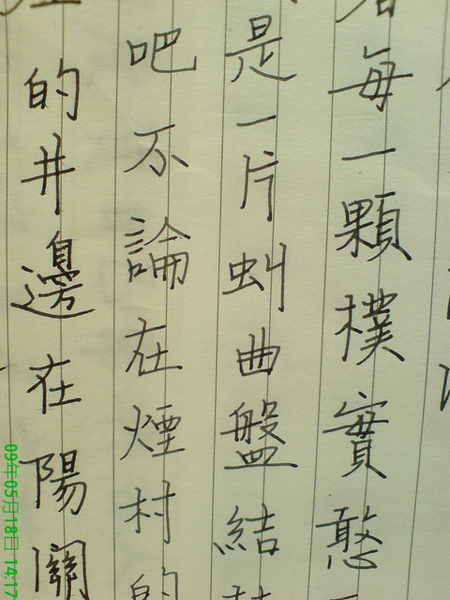 每一顆樸實憨
是一片虯曲盤結
吧不論在煙村的
的井邊在陽關
09年05月18日 14:17